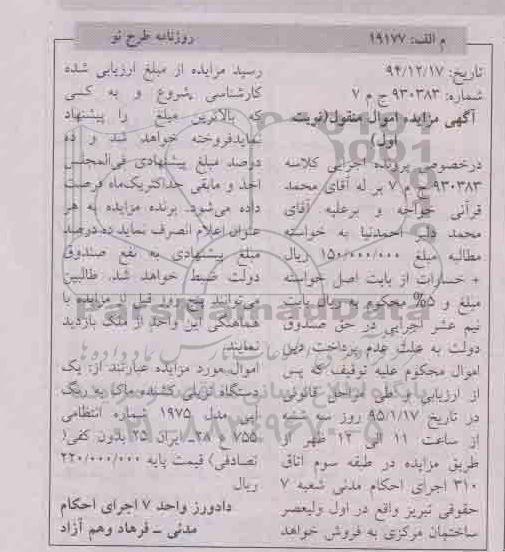 م الف: ۱۹۱۷۷
روزنامه طرح نو
تاریخ: ۹۴/۱۲/۱۷
شماره: ۹۳۰۳۸۳ ج م ۷
آگهی مزایده اموال منقول(نوبت
اول)
درخصوص پرونده اجرایی کلاسه
۹۳۰۳۸۳ ج م ۷ بر له آقای محمد
قرآنی خواجه و برعلیه آقای
محمد دلیر احمدنیا به خواسته
مطالبه مبلغ ۱۵۰/۰۰۰/۰۰۰ ریال
+ خسارات از بابت اصل خواسته
مبلغ و ۵% محکوم به ریال بابت
نیم عشر اجرایی در حق صندوق
دولت به علت عدم پرداخت دین
اموال محکوم علیه توقیف که پس
از ارزیابی و طی مراحل قانونی
در تاریخ ۹۵/۱/۱۷ روز سه شنبه
از ساعت ۱۱ الی ۱۲ ظهر از
طریق مزایده در طبقه سوم اتاق
۳۱۰ اجرای احکام مدنی شعبه ۷
حقوقی تبریز واقع در اول ولیعصر
ساختمان مرکزی به فروش خواهد
رسید مزایده از مبلغ ارزیابی شده
کارشناسی شروع و به کسی
که بالاترین مبلغ را پیشنهاد
نمایدفروخته خواهد شد و ده
درصد مبلغ پیشنهادی فی‌المجلس
اخذ و مابقی حداکثریک‌ماه فرصت
داده می‌شود. برنده مزایده به هر
عنوان اعلام انصرف نماید ده درصد
مبلغ پیشنهادی به نفع صندوق
دولت ضبط خواهد شد. طالبین
می‌توانند پنج روز قبل از مزایده با
هماهنگی این واحد از ملک بازدید
نمایند.
اموال مورد مزایده عبارتند از: یک
دستگاه تریلی کشنده ماک به رنگ
آبی مدل ۱۹۷۵ شماره انتظامی
۷۵۵ ع ۲۸ـ ایران ۲۵ بدون کفی(
تصادفی) قیمت پایه ۲۲۰/۰۰۰/۰۰۰
ریال
دادورز واحد ۷ اجرای احکام
مدنی ـ فرهاد وهم آزاد
ParsNamadData
۰۲۱-۸۸۳۴۹۶۷۰-۵